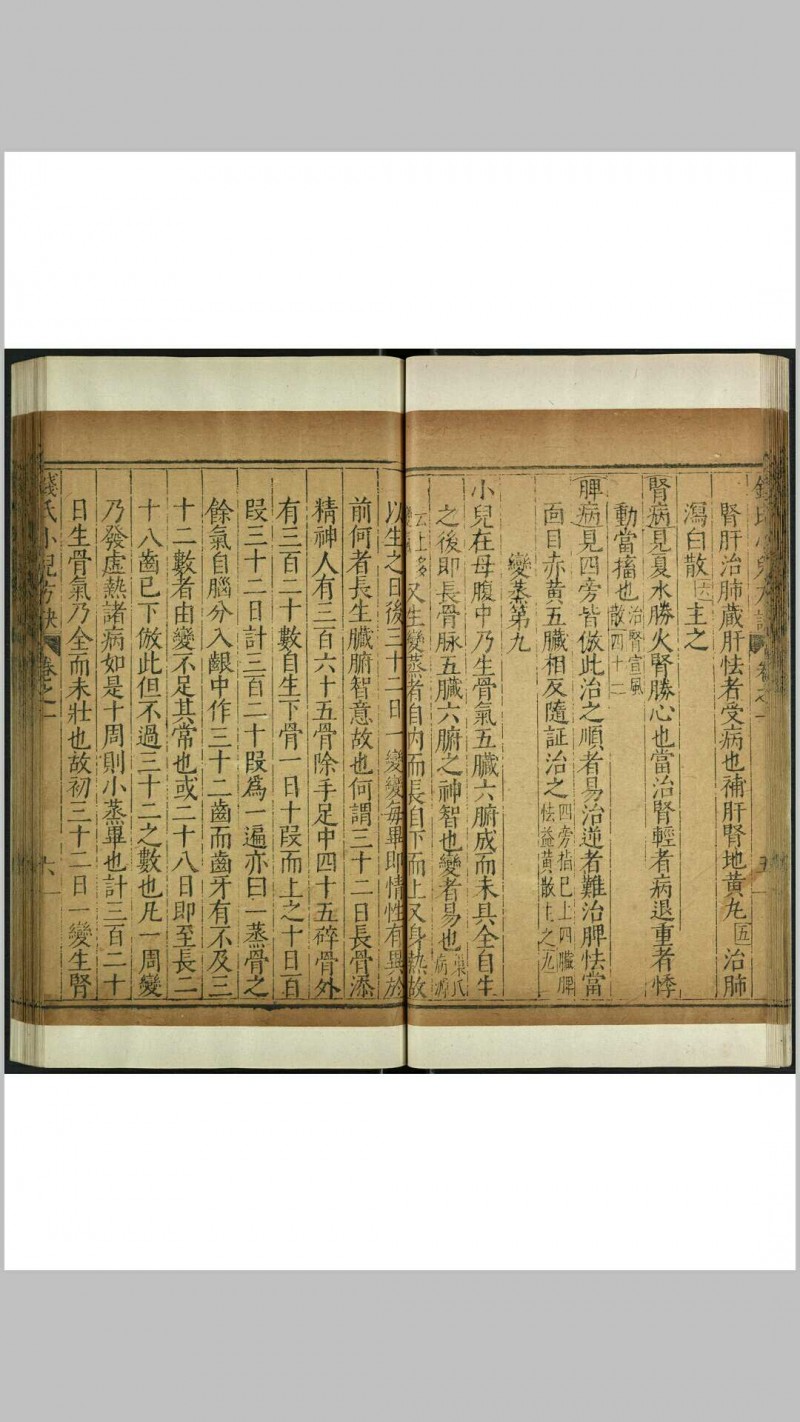 腎肝治肺藏肝怯者受病也補肝腎地黃丸五治肺
瀉白散六主之
腎病見夏水勝火腎勝心也當治腎輕者病退重者悸
動當搐也治腎宣風散四十二
脾病見四旁皆倣此治之順者易治逆者難治脾怯當
面目赤黃五臟相反隨証治之四旁指已上四臟脾怯益黃散主之九
變蒸第九
小兒在母腹中乃生骨氣五臟六腑成而未具全自生
之後即長骨脉五臟六腑之神智也變者易也
又生變蒸者自内而長自下而上又身熱故
以生之日後三十二日一變變每畢即情性有異於
前何者長生臟腑智意故也何謂三十二日長骨添
精神人有三百六十五骨除手足中四十五碎骨外
有三百二十數自生下骨一日十段而上之十日百
段三十二日計三百二十段爲一遍亦曰一蒸骨之
餘氣自腦分入齦中作三十二齒而齒牙有不及三
十二數者由變不足其常也或二十八日即至長二
十八齒已下倣此但不過三十二之數也凡一周變
乃發虛熱諸病如是十周則小蒸畢也計三百二十
日生骨氣乃全而未壯也故初三十二日一變生腎
錢氏小兒方訣 卷之一 六